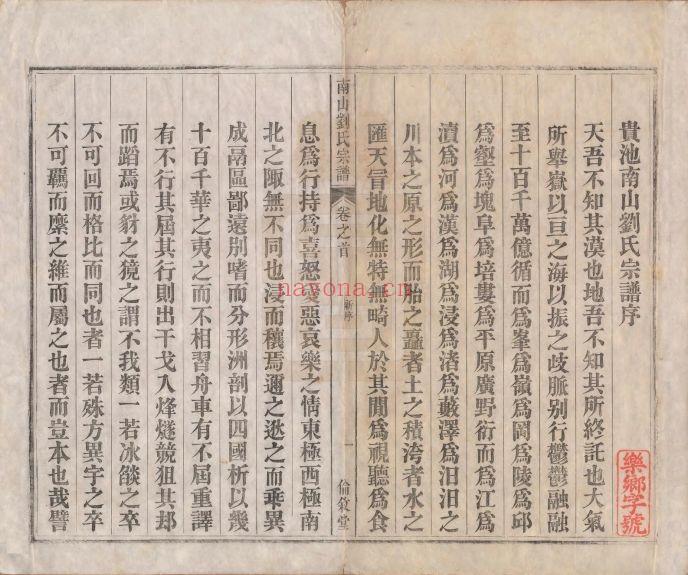 貴池南山劉氏宗譜序
天吾不知其漠也地吾不知其所終託也大氣
所舉嶽以亘之海以振之歧脈別行鬱鬱融融
至十百千萬億循而爲峯爲嶺爲岡爲陵爲邱
爲壑爲塊阜爲培塿爲平原廣野衍而爲江爲
瀆爲河爲漢爲湖爲浸爲渚爲藪澤爲汨汨之
川本之原之形而胎之矗者土之積洿者水之
匯天冒地化無特無畸人於其閒爲視聽爲食
南山劉氏宗譜
卷之首
序
一
倫敘堂
息爲行持爲喜怒愛惡哀樂之情東極西極南
北之陬無不同也浸而穰焉邇之逖之而乖異
成鬲區鄙遠別嗜而分形洲剖以四國析以幾
十百千華之夷之而不相習舟車有不屆重譯
有不行其屆其行則出干戈入烽燧競狙其刦
而蹈焉或豺之獍之謂不我類一若冰燄之卒
不可回而格比而同也者一若殊方異宇之卒
不可羈而縻之維而屬之也者而豈本也哉譬
樂鄉字號
nayona.cn